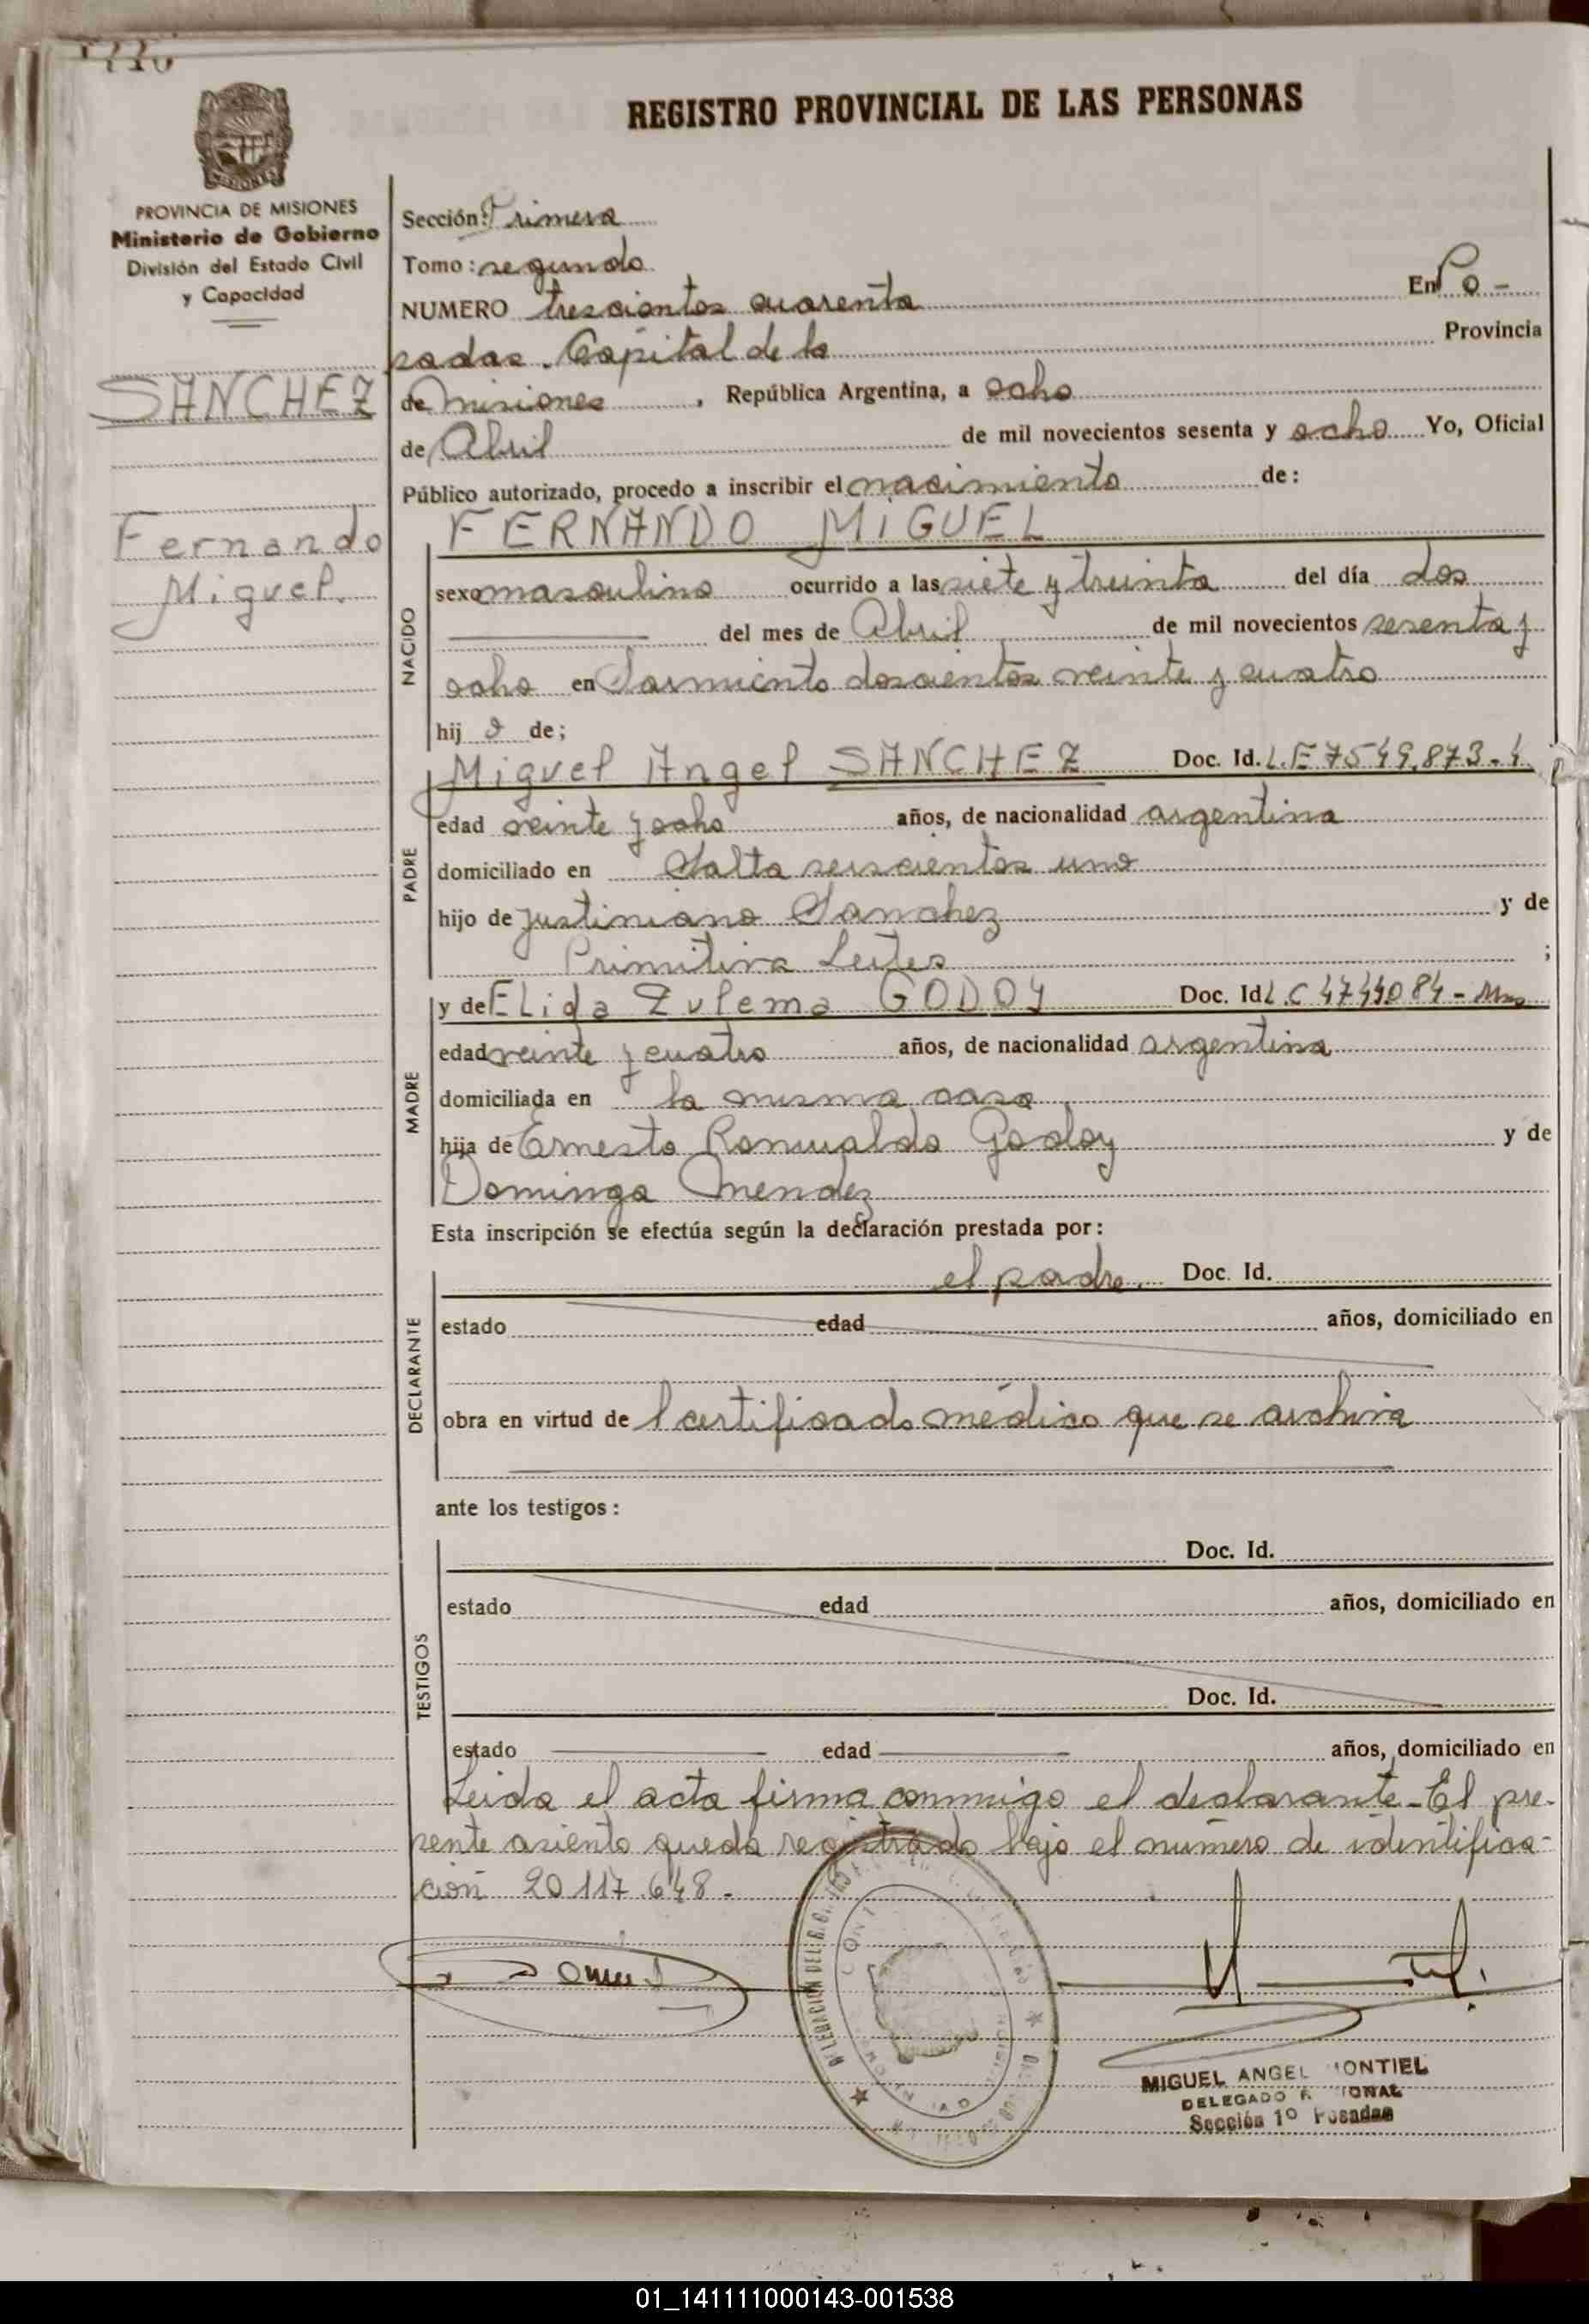 REGISTRO PROVINCIAL DE LAS PERSONAS
PROVINCIA DE MISIONES
Ministerio de Gobierno
División del Estado Civil
y Capacidad
SANCHEZ
Fernando
Miguel.
Sección: Primera
Tomo: segundo
NUMERO trescientos cuarenta En Po-
sadas. Capital de la Provincia
de Misiones, República Argentina, a ocho
de Abril de mil novecientos sesenta y ocho Yo, Oficial
Público autorizado, procedo a inscribir el nacimiento de:
NACIDO
FERNANDO MIGUEL
sexo masculino ocurrido a las siete y treinta del día dos
del mes de Abril de mil novecientos sesenta y
ocho en Sarmiento doscientos veinte y cuatro
hij o de;
PADRE
Miguel Angel SANCHEZ Doc. Id. L.E 7549.873-
edad veinte y ocho años, de nacionalidad argentina
domiciliado en Salta seiscientos uno
hijo de Justiniano Sanchez y de
Primitiva Leites ;
MADRE
y de Elida Zulema GODOY Doc. Id L.C 4744084-
edad veinte y cuatro años, de nacionalidad argentina
domiciliada en la misma casa
hija de Ernesto Romualdo Godoy y de
Dominga Mendez
Esta inscripción se efectúa según la declaración prestada por:
DECLARANTE
el padre. Doc. Id.
estado edad años, domiciliado en
obra en virtud de l certificado médico que se archiva
ante los testigos:
TESTIGOS
Doc. Id.
estado edad años, domiciliado en
Doc. Id.
estado edad años, domiciliado en
Leida el acta firma conmigo el declarante-El pre-
sente asiento queda registrado bajo el número de identifica-
ción 20.117.648.-
MIGUEL ANGEL MONTIEL
DELEGADO
Sección 1º Posadas
01_141111000143-001538